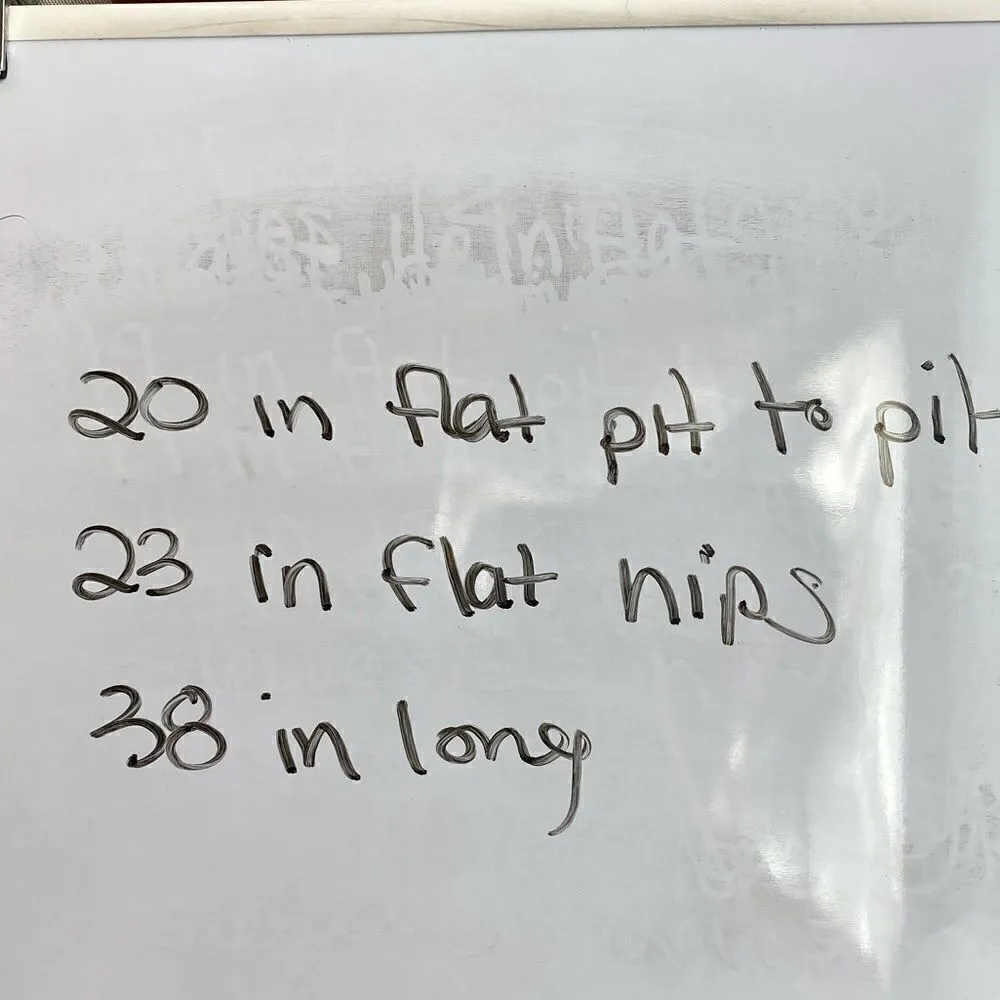 20 in flat pit to pit
23 in flat hips
38 in long